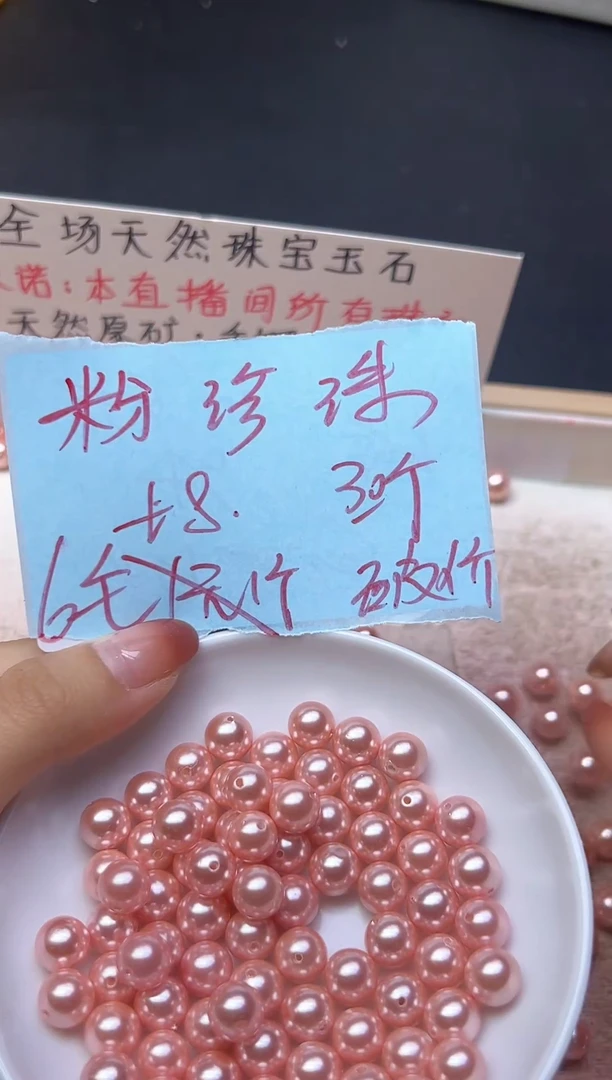 全场天然珠宝玉石
诺:本直播间所有珠
天然原矿,
粉珍珠
+8. 30个
6毛 1元1个 破价